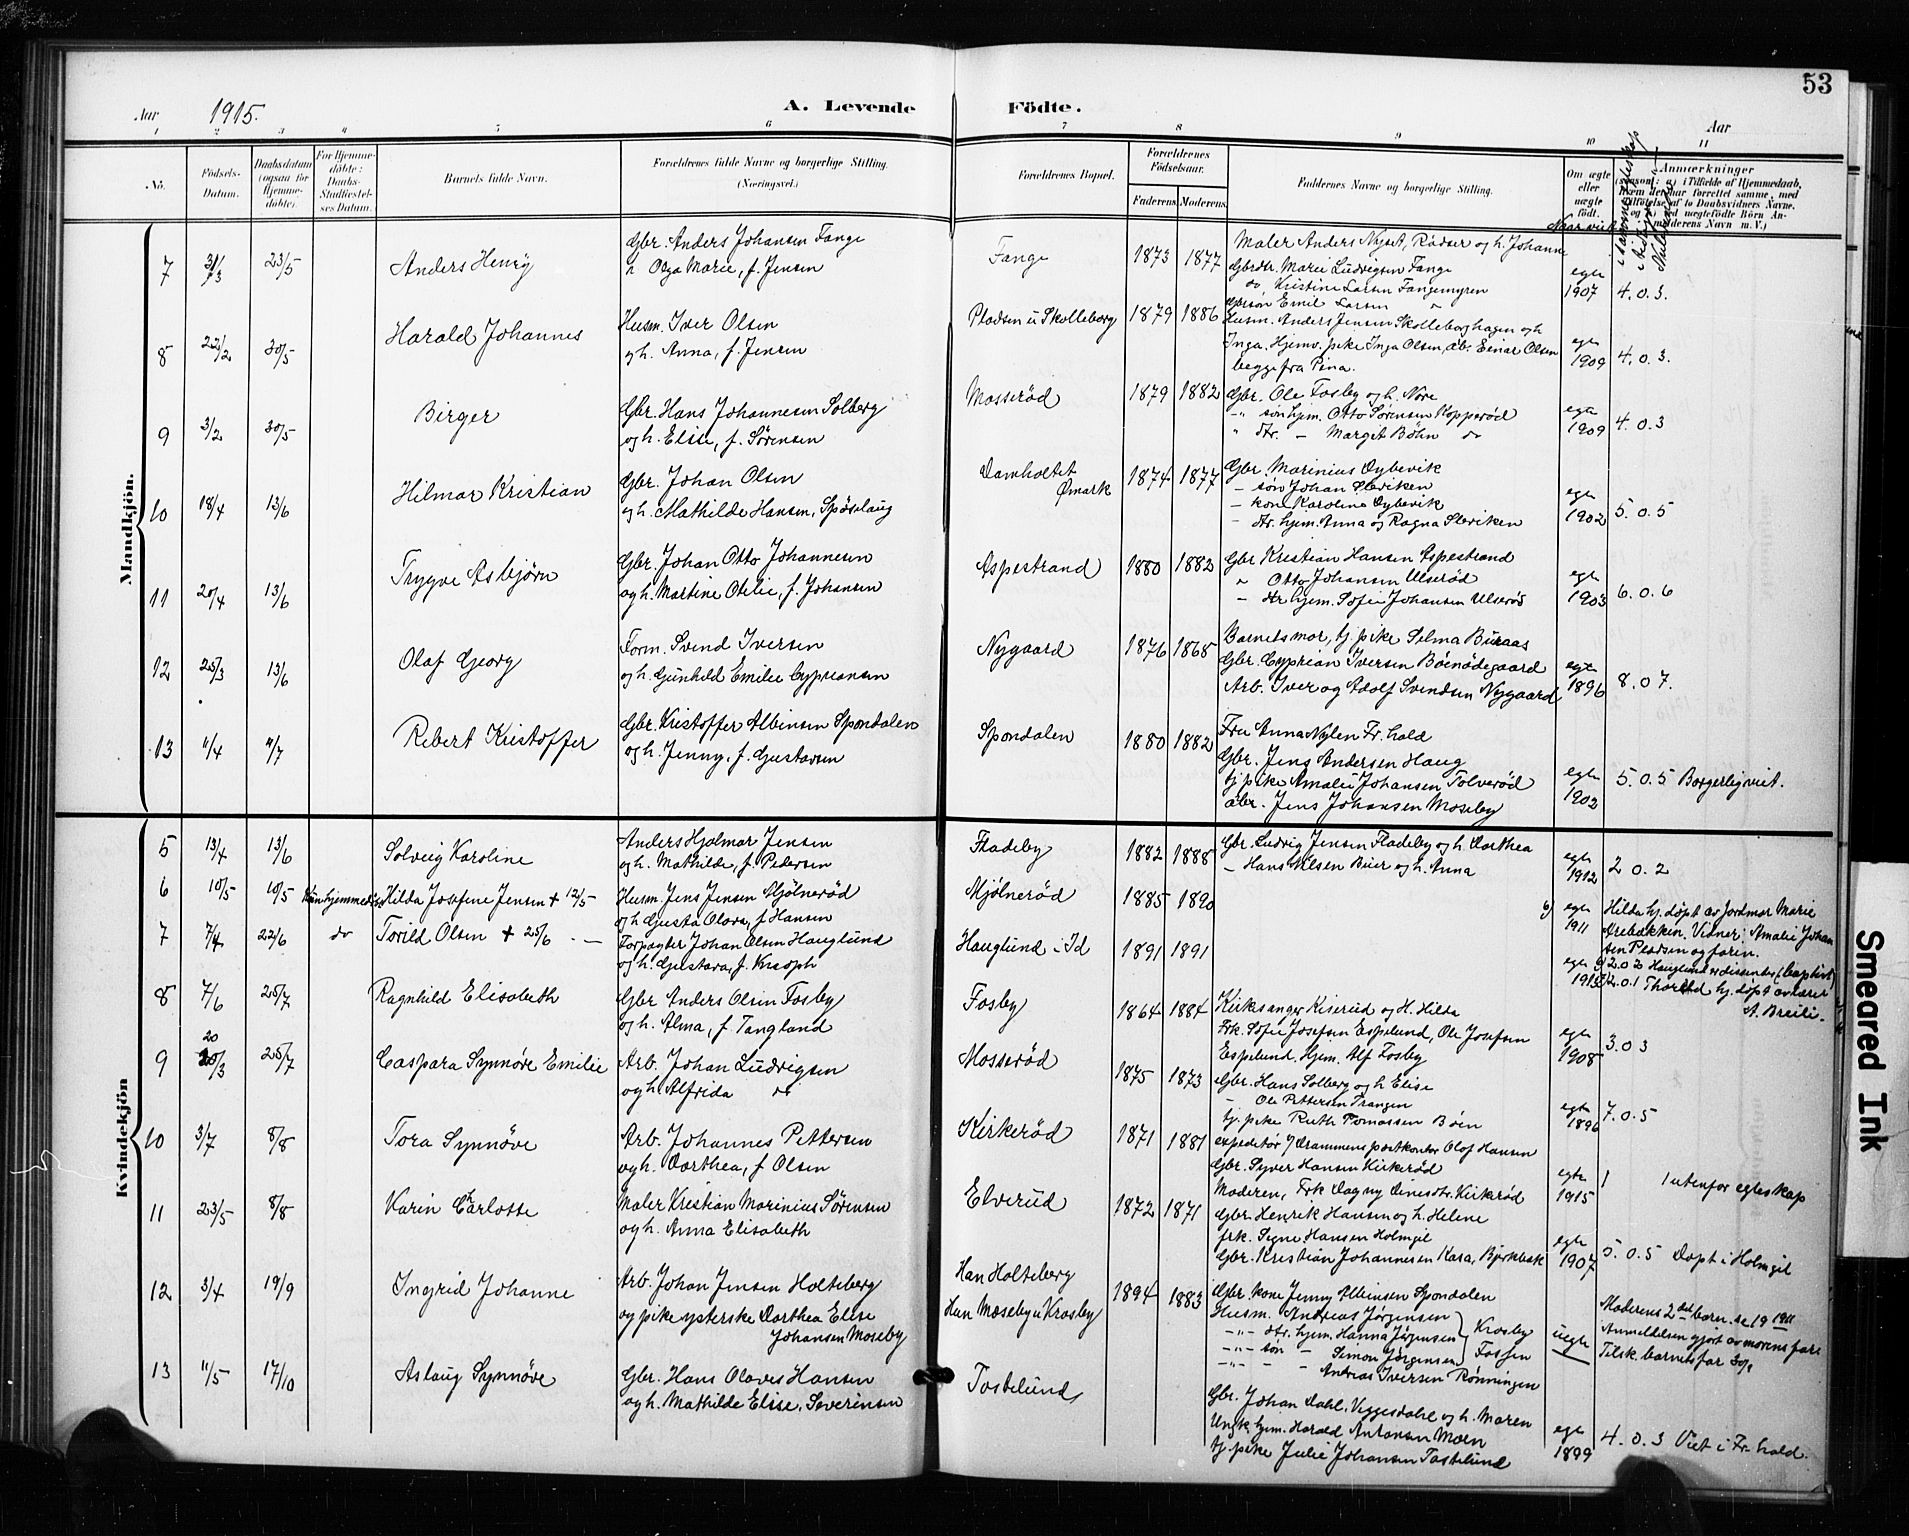 53
Aar 1915. A. Levende Födte. Aar
1 2 3 4 5 6 7 8 9 10 11
No.
Födsels-Datum.
Daabsdatum (ogsaa for Hjemme-döbte).
For Hjemme-döbte: Daabs-Stadfæstel-ses Datum.
Barnets fulde Navn.
Forældrenes fulde Navne og borgerlige Stilling.
(Næringsvei.)
Forældrenes Bopæl.
Forældrenes Födselsaar.
Faderens. Moderens.
Faddernes Navne og borgerlige Stilling.
Om ægte eller uægte födt.
Naar viet
Anmærkninger
(saasom: a) i Tilfælde af Hjemmedaab, hvem der har forrettet samme, med Tilföielse af to Daabsvidners Navne. og b) med uægtefödte Börn An- Moderens Navn m. V.)
Mandkjön.
7 31/3 23/5 Anders Henry
Gbr. Anders Johansen Fange
" Olga Marie, f. Jensen
Fange 1873 1877
Maler Anders Nyset, Rødser og h. Johanne
Gbrdtr. Marie Ludvigsen Fange
do Kristine Larsen Fangemyren
Gbrsøn Emil Larsen "
egte 1907 4.0.3.
8 22/2 30/5 Harald Johannes
Husm. Iver Olsen
og h. Anna, f. Jensen
Pladsen u Skolleborg 1879 1886
Husm. Anders Jensen Skolleborghagen og h
Inga. Hjemv. pike Inga Olsen, arb. Einar Olsen
begge fra Pina.
egte 1909 4.0.3.
9 3/2 30/5 Birger
Gbr. Hans Johannesen Solberg
og h. Elise, f. Sørensen
Mosserød 1879 1882
Gbr. Ole Fosby og h. Nore
-"- søn hjm. Otto Sørensen Kopperød
" dtr. - Margit Bøhn do
egte 1909 4.0.3
10 18/4 13/6 Hilmar Kristian
Gbr. Johan Olsen
og h. Mathilde Hansen, Spøselaug
Damholtet
Ømark 1874 1877
Gbr. Marinius Dybevik
- søn Johan Sleviken
- kone Karoline Dybevik
- dtr. hjm. Anna og Ragna Sleviken
egte 1902 5.0.5
11 20/4 13/6 Trygve Asbjørn
Gbr. Johan Otto Johannesen
og h. Martine Otilie, f. Johansen
Aspestrand 1880 1882
Gbr Kristian Hansen Aspestrand
" Otto Johansen Ulserød
- dtr hjem. Sofie Johansen Ulserød
egte 1903 6.0.6
12 25/3 13/6 Olaf Georg
Form. Svend Iversen
og h. Gunhild Emilie Cypriansen
Nygaard 1876 1865
Barnets mor, tj. pike Selma Buraas
Gbr. Cyprian Iversen Bøenødegaard
Arb. Iver og Adolf Svendsen Nygaard
egte 1896 8.0 7.
13 11/4 4/7 Robert Kristoffer
Gbr. Kristoffer Albinsen Spondalen
og h. Jenny, f. Gustavsen
Spondalen 1880 1882
Fru Anna Nylen Fr.hald
Gbr. Jens Andersen Haug
tj. pike Amalie Johansen Tolverød
arb. Jens Johansen Moseby
egte 1902 5.0.5 Borgerlig viet.
Kvindekjön
5 13/4 13/6 Solveig Karoline
Anders Hjalmar Jensen
og h. Mathilde, f. Pedersen
Fladeby 1882 1888
Gbr. Ludvig Jensen Fladeby og h. Dorthea
- Hans Nilsen Buer og h. Anna
egte 1912 2 0.2
6 10/5 10/5 Kun hjemmedøbt Hilda Josefine Jensen + 12/5 -
Husm. Jens Jensen Mjølnerød
og h Gusta Olava, f. Hansen
Mjølnerød 1885 1890
6) egte 1911
Hilda hj. døpt av Jordmor Marie
Arebakken. Vidner: Amalie Johan
sen Pladsen og faren.
7 7/4 22/6 do Torild Olsen + 25/6 -
Forpagter Johan Olsen Hauglund
og h. Gustava, f. Knoph
Hauglund i Id 1891 1891
egte 1915
2.0 2 Hauglund er dissenter (baptist)
2.0.1 Thorild hj. døpt av lærer
A. Breili.
8 7/6 25/7 Ragnhild Elisabeth
Gbr Anders Olsen Fosby
og h. Alma, f. Tangland
Fosby 1864 1884
Kirksanger Kiserud og H. Hilda
Frk. Sofie Josefsen Espelund, Ole Josefsen
Espelund, Hjm. Alf Fosby
egte 1908 3.0 3
9 20/3 25/7 Caspara Synnøve Emilie
Arb. Johan Ludvigsen
og h Alfrida do
Mosserød 1875 1873
Gbr. Hans Solberg og h Elise
- Ole Pettersen Trangen
tj. pike Ruth Tomassen Bøen
egte 1896 7.0.5
10 3/7 8/8 Tora Synnøve
Arb. Johannes Pettersen
og h. Dorthea, f Olsen
Kirkerød 1871 1881
expeditør v/ Drammens postkontor Olaf Hansen
Gbr. Syver Hansen Kirkerød
Moderen, Frk Dagny Dinesdtr. Kirkrød
egte 1915 1 1 utenfor egteskap
11 23/5 8/8 Karin Charlotte
Maler Kristian Marinius Sørensen
og h. Anna Elisabeth
Elverud 1872 1871
Gbr. Henrik Hansen og h. Helene
frk. Signe Hansen Holmgil
Gbr. Kristian Johannesen Kasa, Bjørkebæk
egte 1907 5.0.5 Døpt i Holmgil
12 3/4 19/9 Ingrid Johanne
Arb. Johan Jensen Holteberg
og pike ysterske Dorthea Elise
Johansen Moseby
Han Holteberg
Hun Moseby u Krosby 1894 1883
Gbr. kone Jenny Albinsen Spondalen
Husm. Andreas Jørgensen
-"- dtr. hjm. Hanna Jørgensen } Krosby
-"- søn - Simon Jørgensen } Fossen
-"- - - Andreas Iversen Rønningen
uegte
Moderens 2det barn. se 19 1911
Anmeldelsen gjort av morens far
Tilsk. barnefar 30/9
13 11/5 17/10 Aslaug Synnøve
Gbr. Hans Olaves Hansen
og h. Mathilde Elise, Severinsen
Tostelund
Gbr. Johan Dahl, Viggesdahl og h. Maren
Ungk. hjm. Harald Antonsen Moen
tj. pike Julie Johansen Tostelund
egte 1899 4.0.3 Viet i Fr.hald.
Smeared Ink